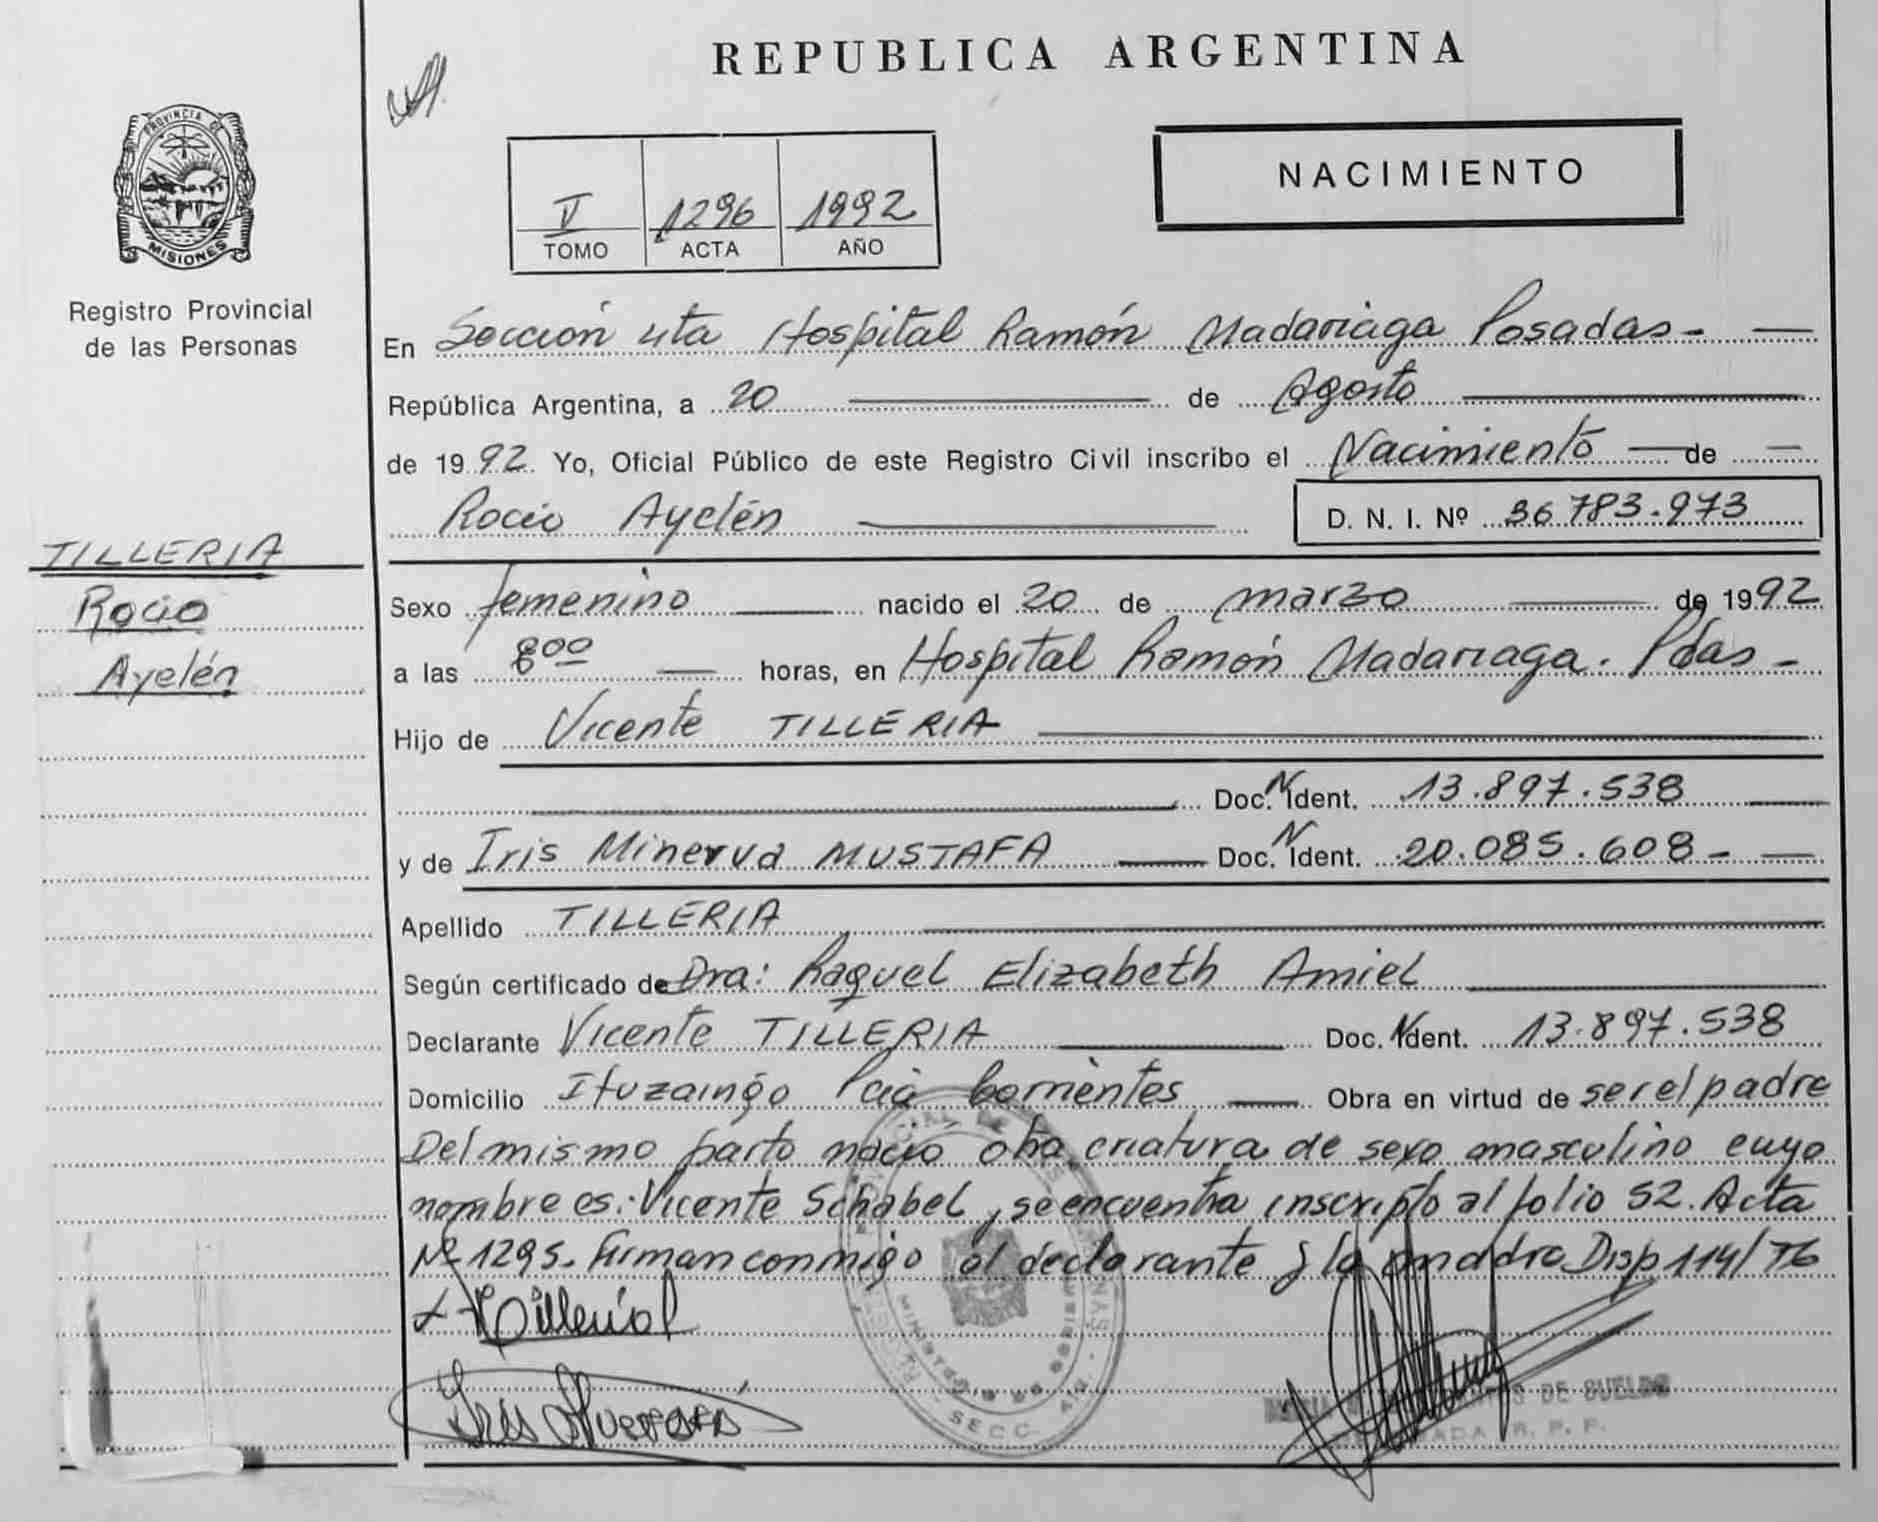 REPUBLICA ARGENTINA
PROVINCIA DE
MISIONES
Registro Provincial
de las Personas
V 1296 1992
TOMO ACTA AÑO
NACIMIENTO
En Sección 4ta Hospital Ramón Madariaga Posadas -
República Argentina, a 20 de Agosto
de 1992 Yo, Oficial Público de este Registro Civil inscribo el Nacimiento de
Rocío Ayelén D. N. I. Nº 36 783.973
TILLERIA
Rocio
Ayelén
Sexo femenino nacido el 20 de marzo de 1992
a las 8 00 horas, en Hospital Ramón Madariaga. Pdas -
Hijo de Vicente TILLERIA
Doc. N Ident. 13.897.538
y de Iris Minerva MUSTAFA Doc. N Ident. 20.085.608 -
Apellido TILLERIA
Según certificado de Dra: Raquel Elizabeth Amiel
Declarante Vicente TILLERIA Doc. N Ident. 13.897.538
Domicilio Ituzaingo Pcia Corrientes Obra en virtud de ser el padre
Del mismo parto nacio otra criatura de sexo masculino cuyo
nombre es: Vicente Schabel, se encuentra inscripto al folio 52. Acta
Nº 1295. Firman conmigo el declarante y la madre Disp 114/76
SECC. 4ta
DE SUELDO
R. P. P.